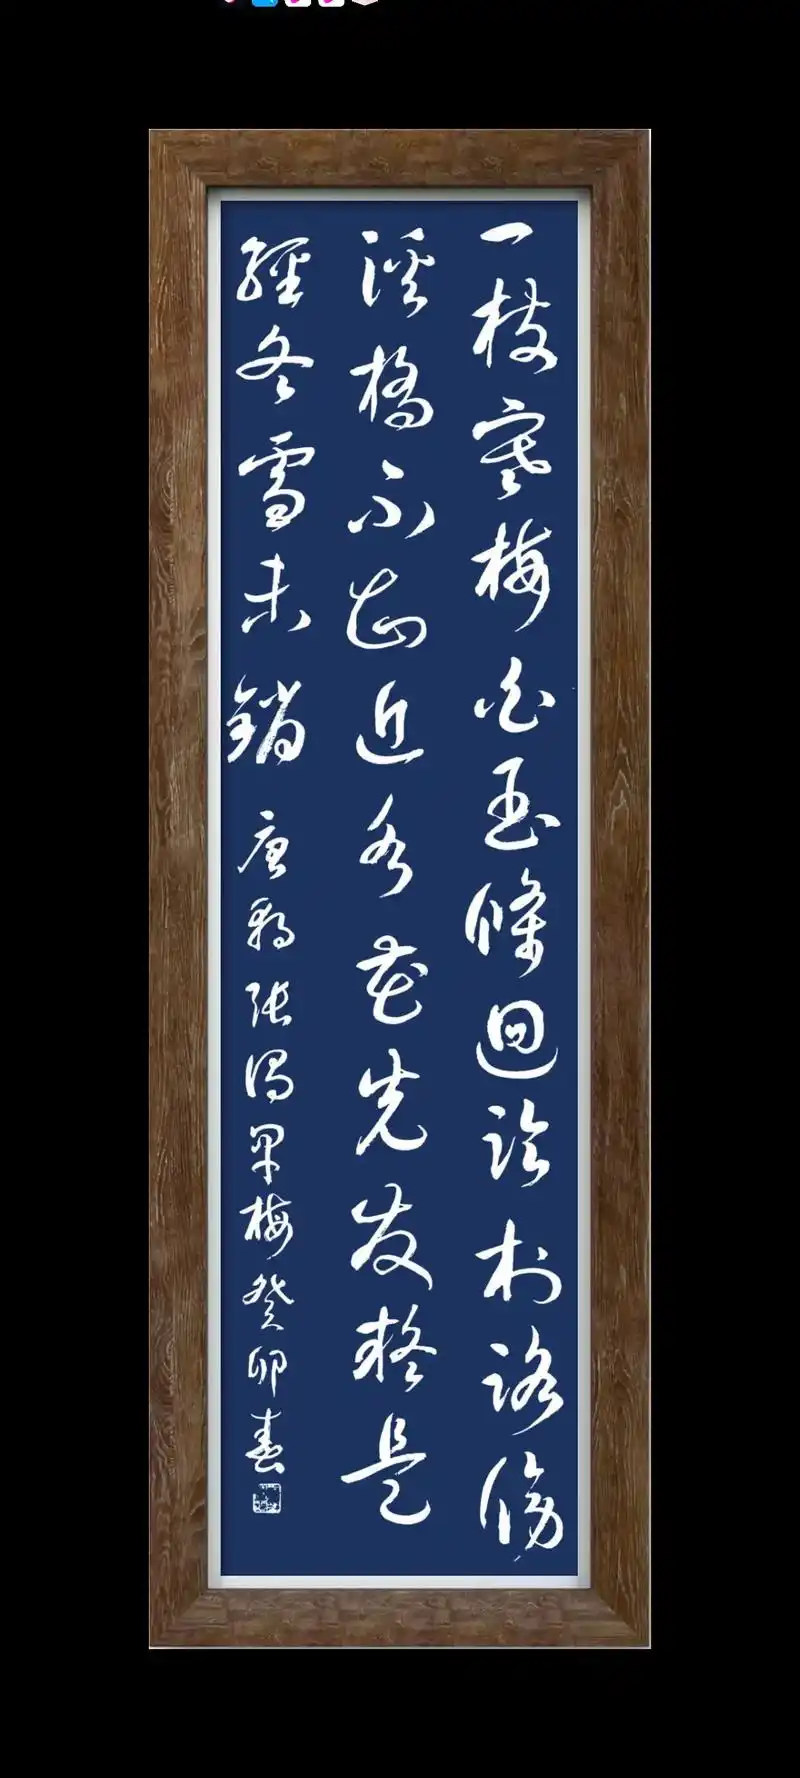 一枝寒梅白玉條迴臨村路傍
溪橋不知近水花先发疑是
經冬雪未銷 唐朝張謂早梅癸卯春